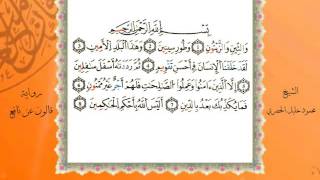 بِسْمِ اللَّهِ الرَّحْمَٰنِ الرَّحِيمِ
وَالتِّينِ وَالزَّيْتُونِ ١ وَطُورِ سِينِينَ ٢ وَهَٰذَا الْبَلَدِ الْأَمِينِ ٣
لَقَدْ خَلَقْنَا الْإِنسَانَ فِي أَحْسَنِ تَقْوِيمٍ ٤ ثُمَّ رَدَدْنَاهُ أَسْفَلَ سَافِلِينَ ٥
إِلَّا الَّذِينَ ءَامَنُوا وَعَمِلُوا الصَّالِحَاتِ فَلَهُمْ أَجْرٌ غَيْرُ مَمْنُونٍ ٦
فَمَا يُكَذِّبُكَ بَعْدُ بِالدِّينِ ٧ أَلَيْسَ اللَّهُ بِأَحْكَمِ الْحَاكِمِينَ ٨
الشيخ
محمود خليل الحصري
رواية
قالون عن نافع